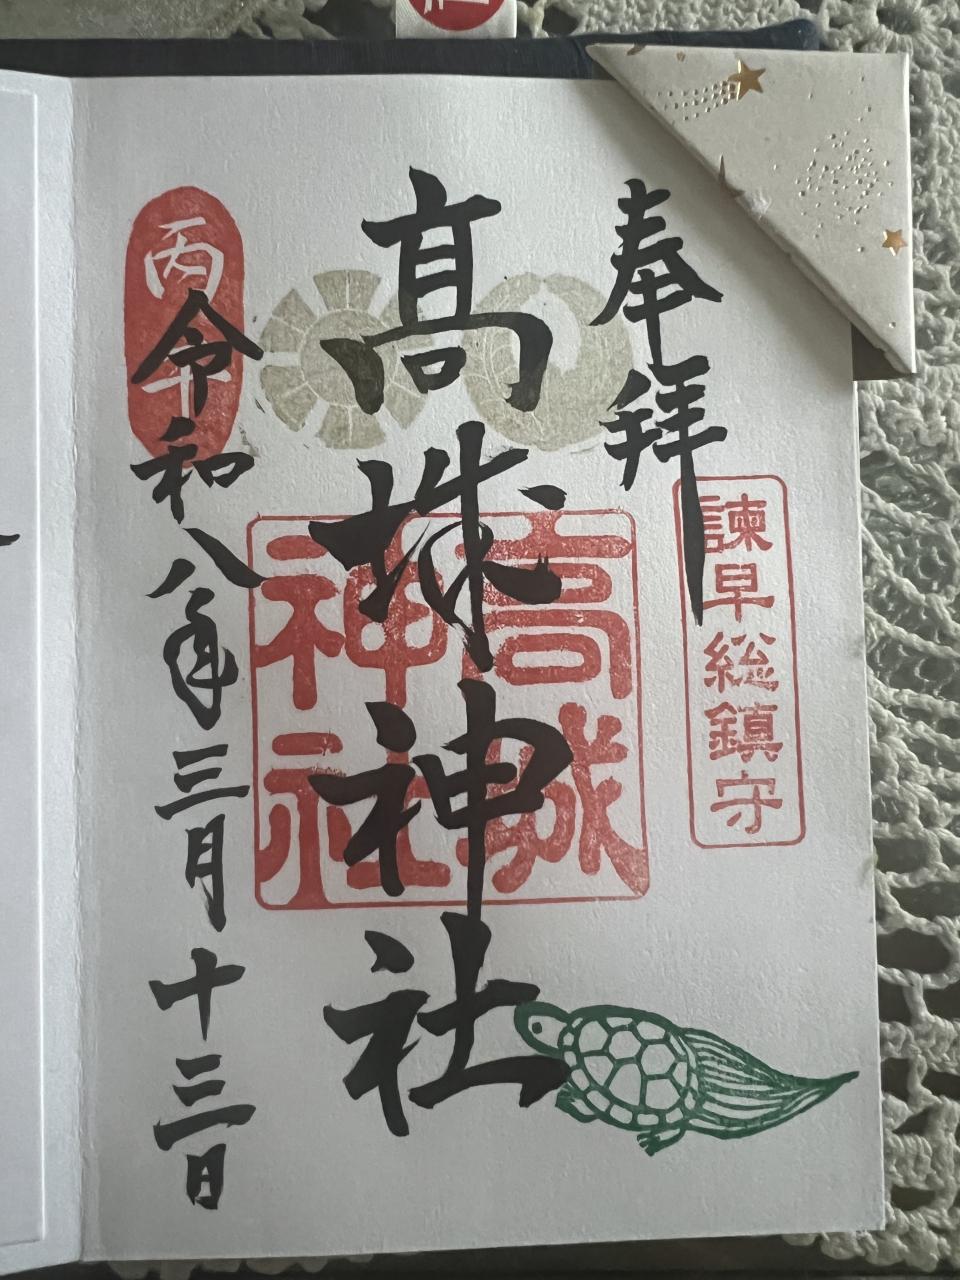 奉拝
諫早総鎮守
髙城神社
高城神社
丙午
令和八年三月十三日